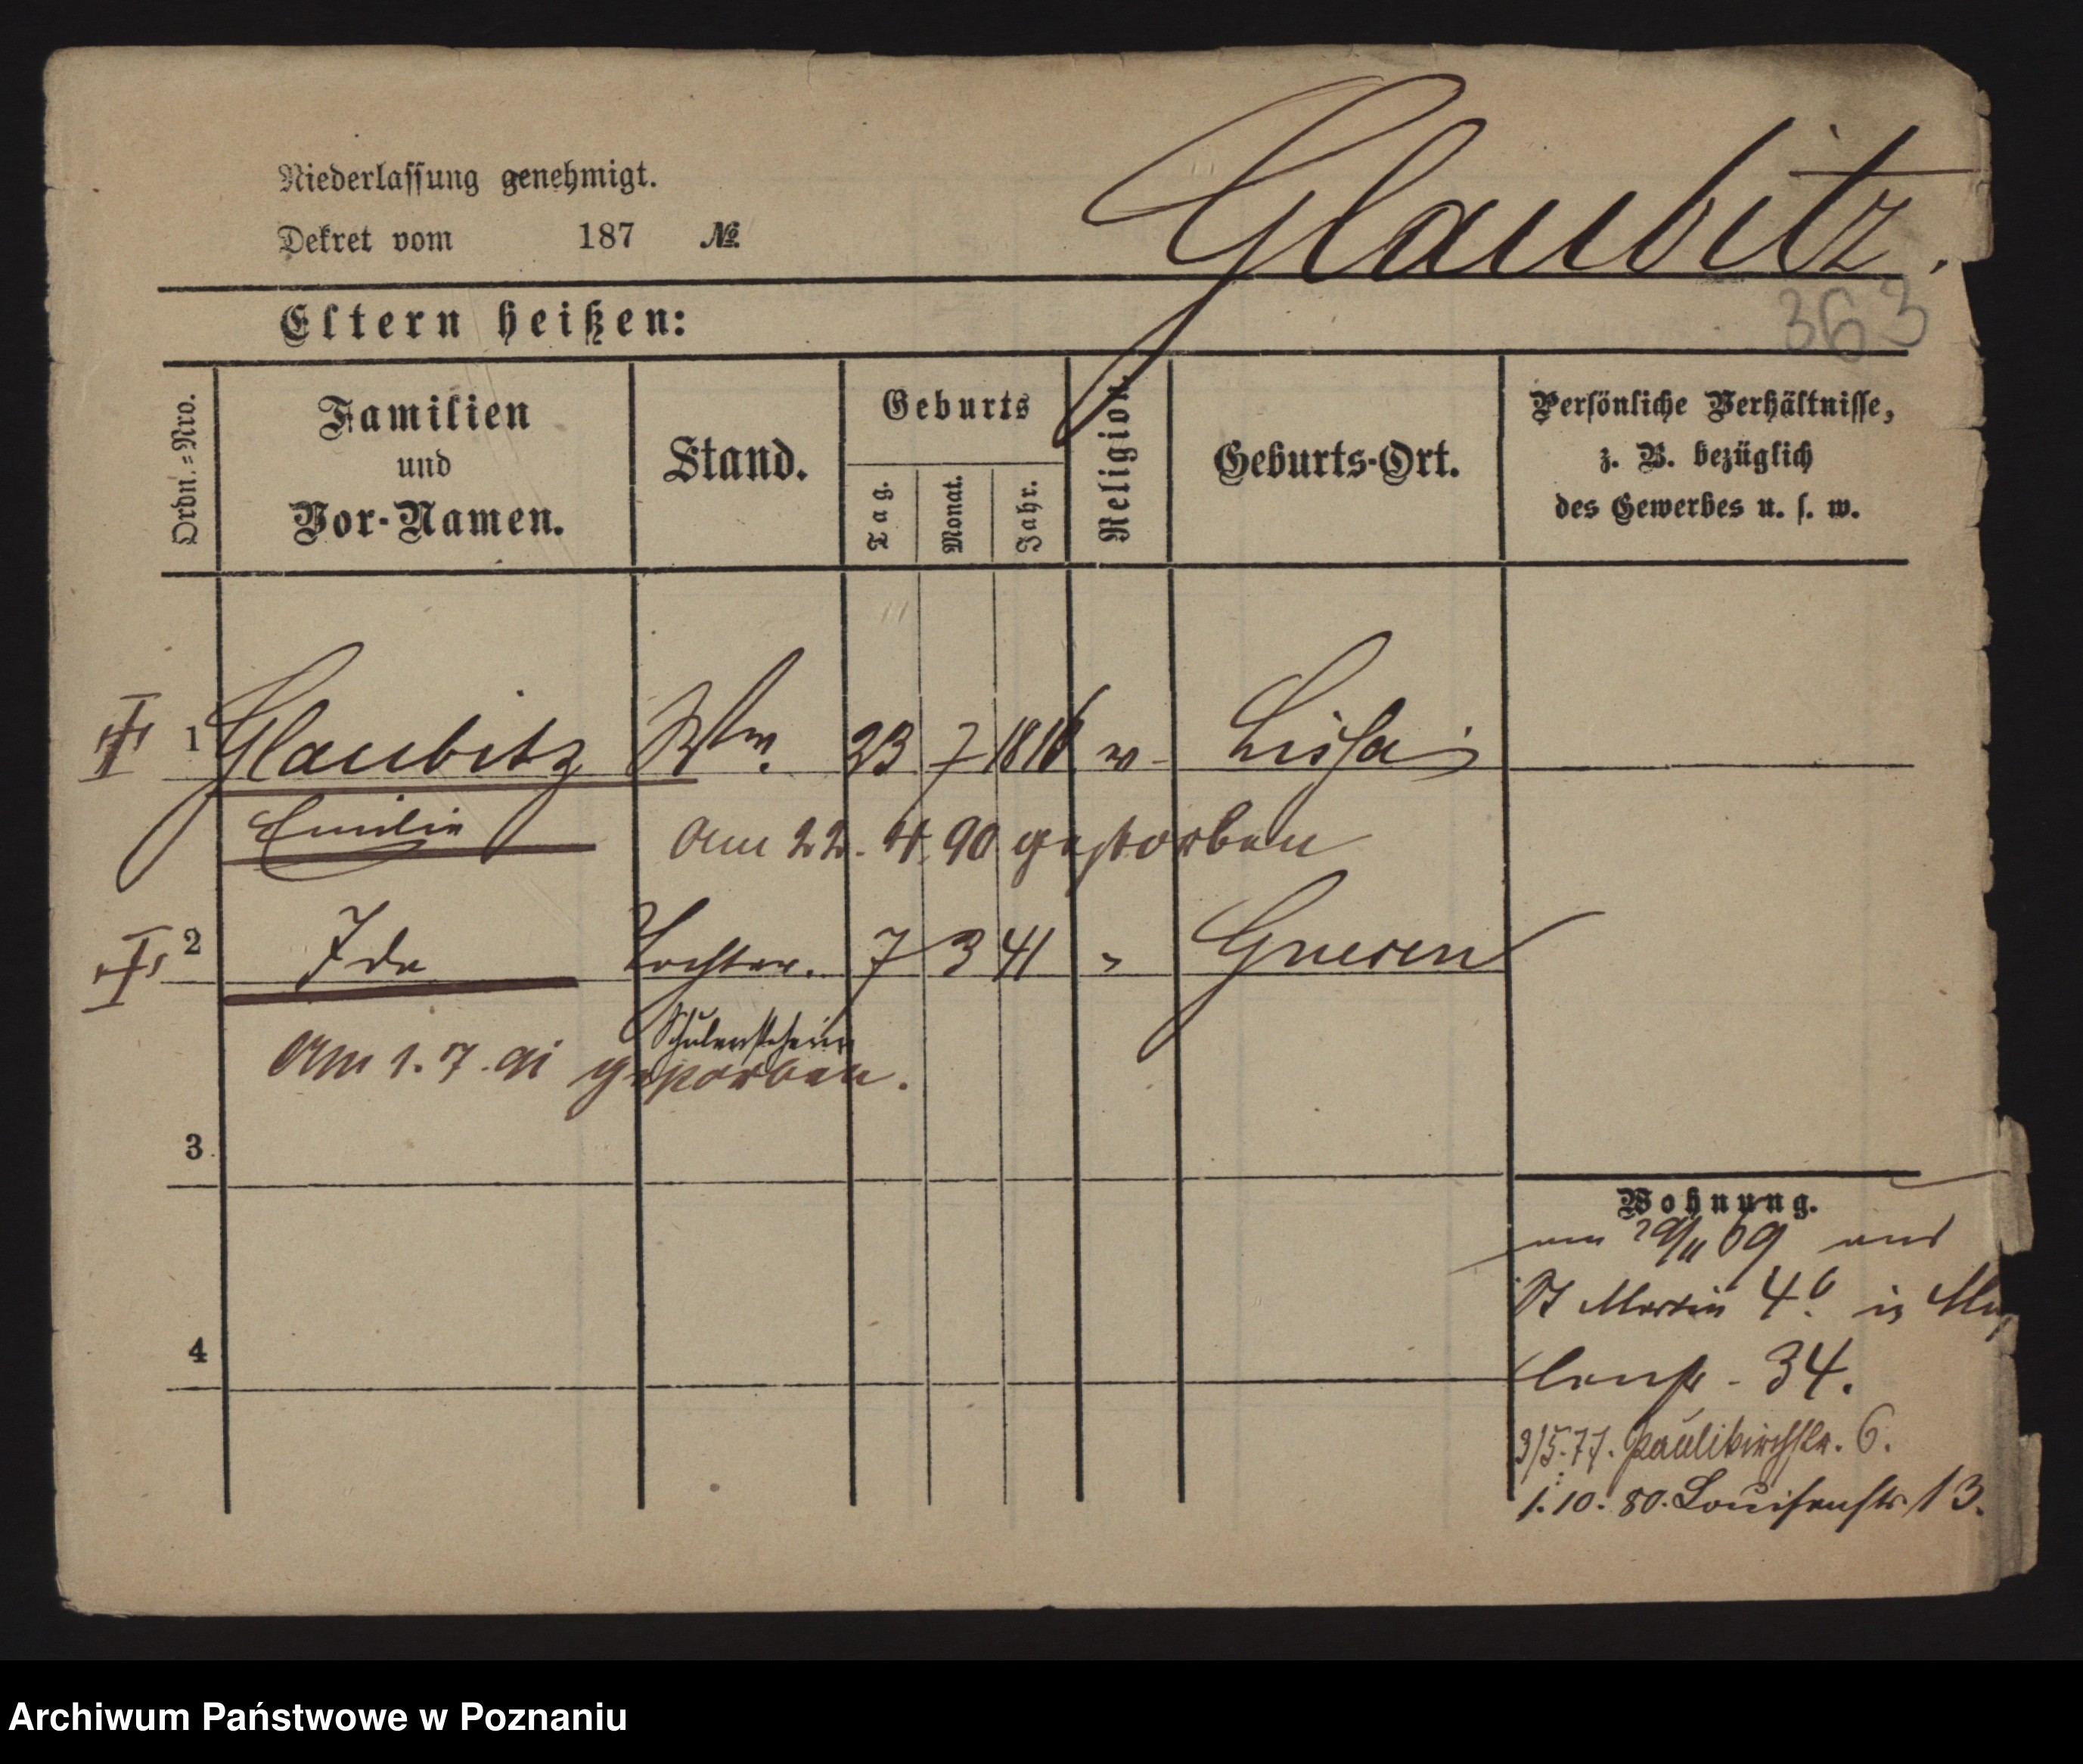 Niederlassung genehmigt.
Dekret vom 187 №
Glaubitz.
363
Eltern heißen:
Ordn.=Nro.
Familien
und
Vor-Namen.
Stand.
Geburts
Tag.
Monat.
Jahr.
Religion.
Geburts-Ort.
Persönliche Verhältnisse,
z. B. bezüglich
des Gewerbes u. s. w.
1 Glaubitz Ww. 23 7 1816 Lissa
Emilie am 22. 4. 90 gestorben
2 Ida Tochter. 7 3 41 " Gnesen
Am 1. 7. 91 gestorben.
3
4
Wohnung.
29/11 69
St Martin 46 in
34.
3/5. 77. Paulikirchstr. 6.
1. 10. 80. Louisenstr. 13.
Archiwum Państwowe w Poznaniu